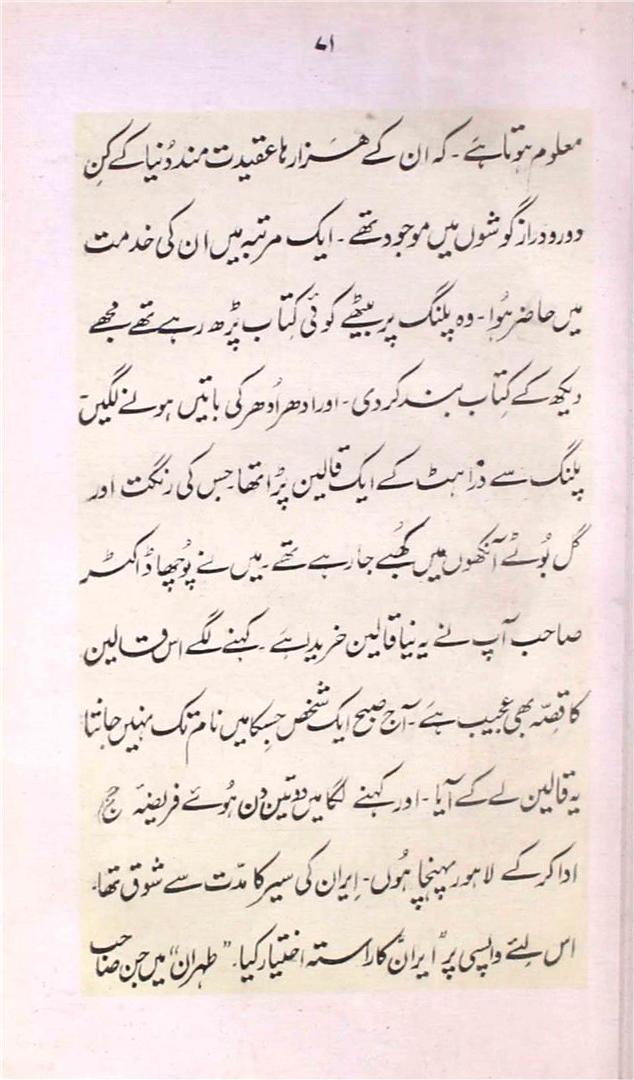 ۷۱
معلوم ہوتا ہے۔ کہ ان کے ہزارہا عقیدت مند دُنیا کے کن
دور و دراز گوشوں میں موجود تھے۔ ایک مرتبہ میں ان کی خدمت
میں حاضر ہُوا۔ وہ پلنگ پر بیٹھے کوئی کِتاب پڑھ رہے تھے مجھے
دیکھ کے کِتاب بند کر دی۔ اور ادھر اُدھر کی باتیں ہونے لگیں
پلنگ سے ذرا ہٹ کے ایک قالین پڑا تھا۔ جس کی رنگت اور
گل بُوٹے آنکھوں میں کھُبے جا رہے تھے۔ میں نے پُوچھا ڈاکٹر
صاحب آپ نے یہ نیا قالین خریدا ہے۔ کہنے لگے اس قالین
کا قصّہ بھی عجیب ہے۔ آج صبح ایک شخص جسکا میں نام تک نہیں جانتا
یہ قالین لے کے آیا۔ اور کہنے لگا میں دو تین دن ہُوئے فریضۂ حج
ادا کر کے لاہور پہنچا ہُوں۔ اِیران کی سیر کا مدّت سے شوق تھا۔
اس لِئے واپسی پر "ایران" کا راستہ اختیار کیا۔ "طہران" میں جن صاحب